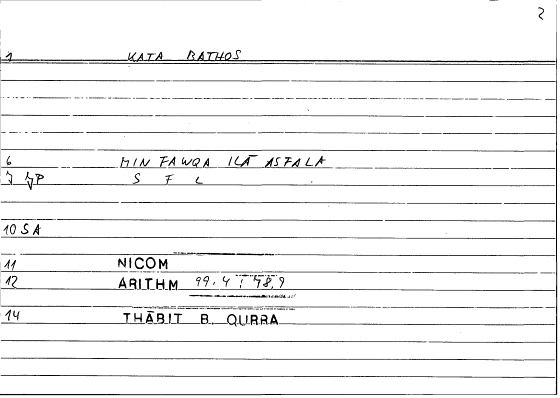 2
1 KATA BATHOS
6 MIN FAWQA ILĀ ASFALA
7 S F L
10 SA
11 NICOM
12 ARITHM 99.4 : 48,9
14 THĀBIT B. QURRA